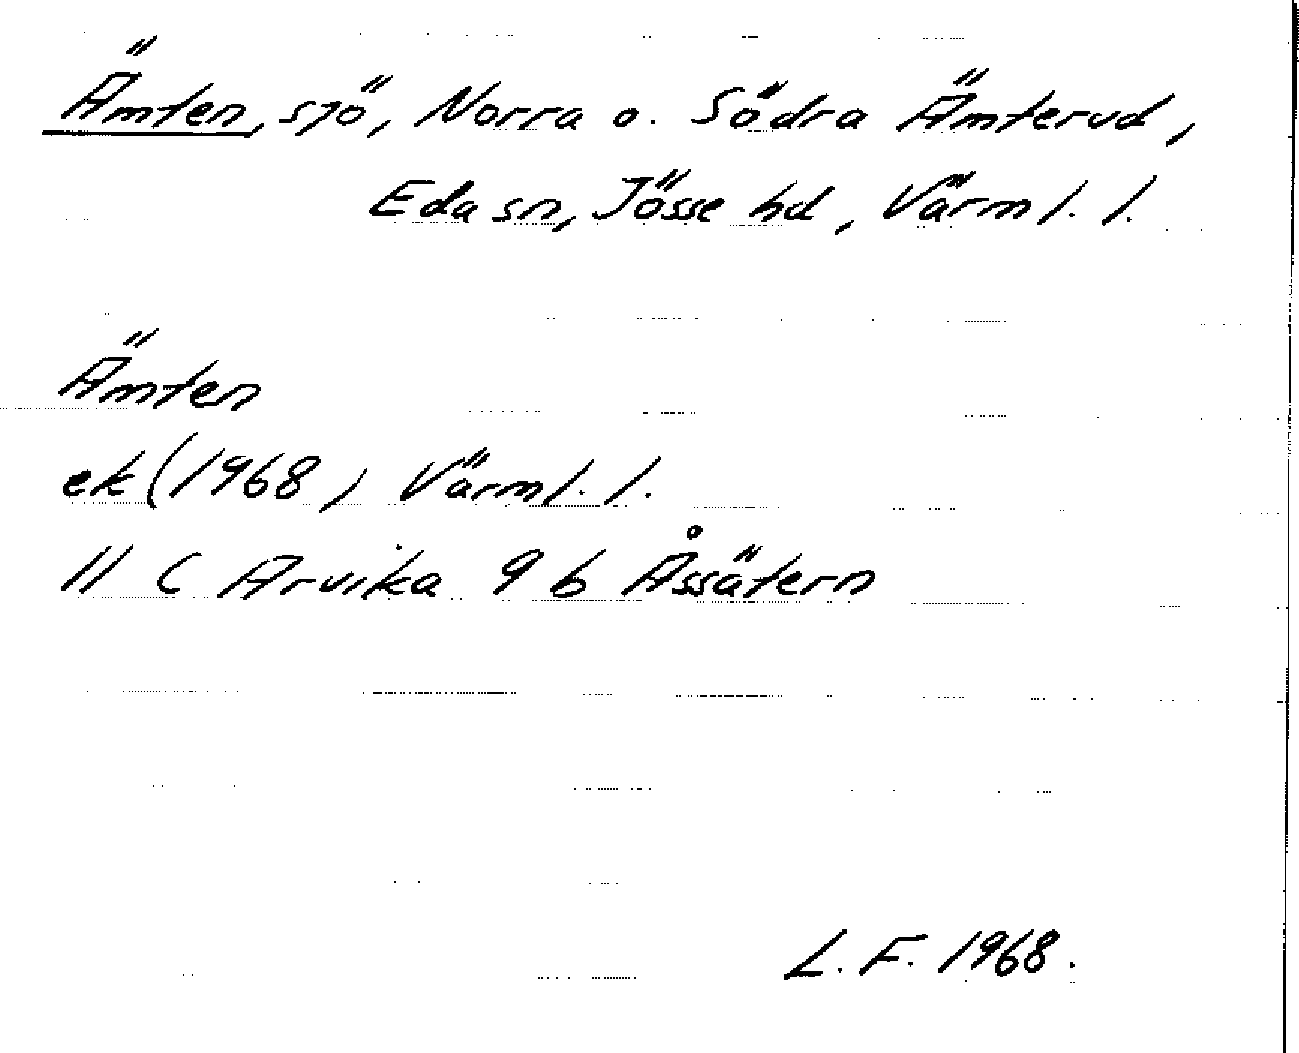 Ämten, sjö, Norra o. Södra Ämterud,
Eda sn, Jösse hd, Värml. l.
Ämten
ek (1968) Värml. l.
11 C Arvika 9 b Åssätern
L. F. 1968.